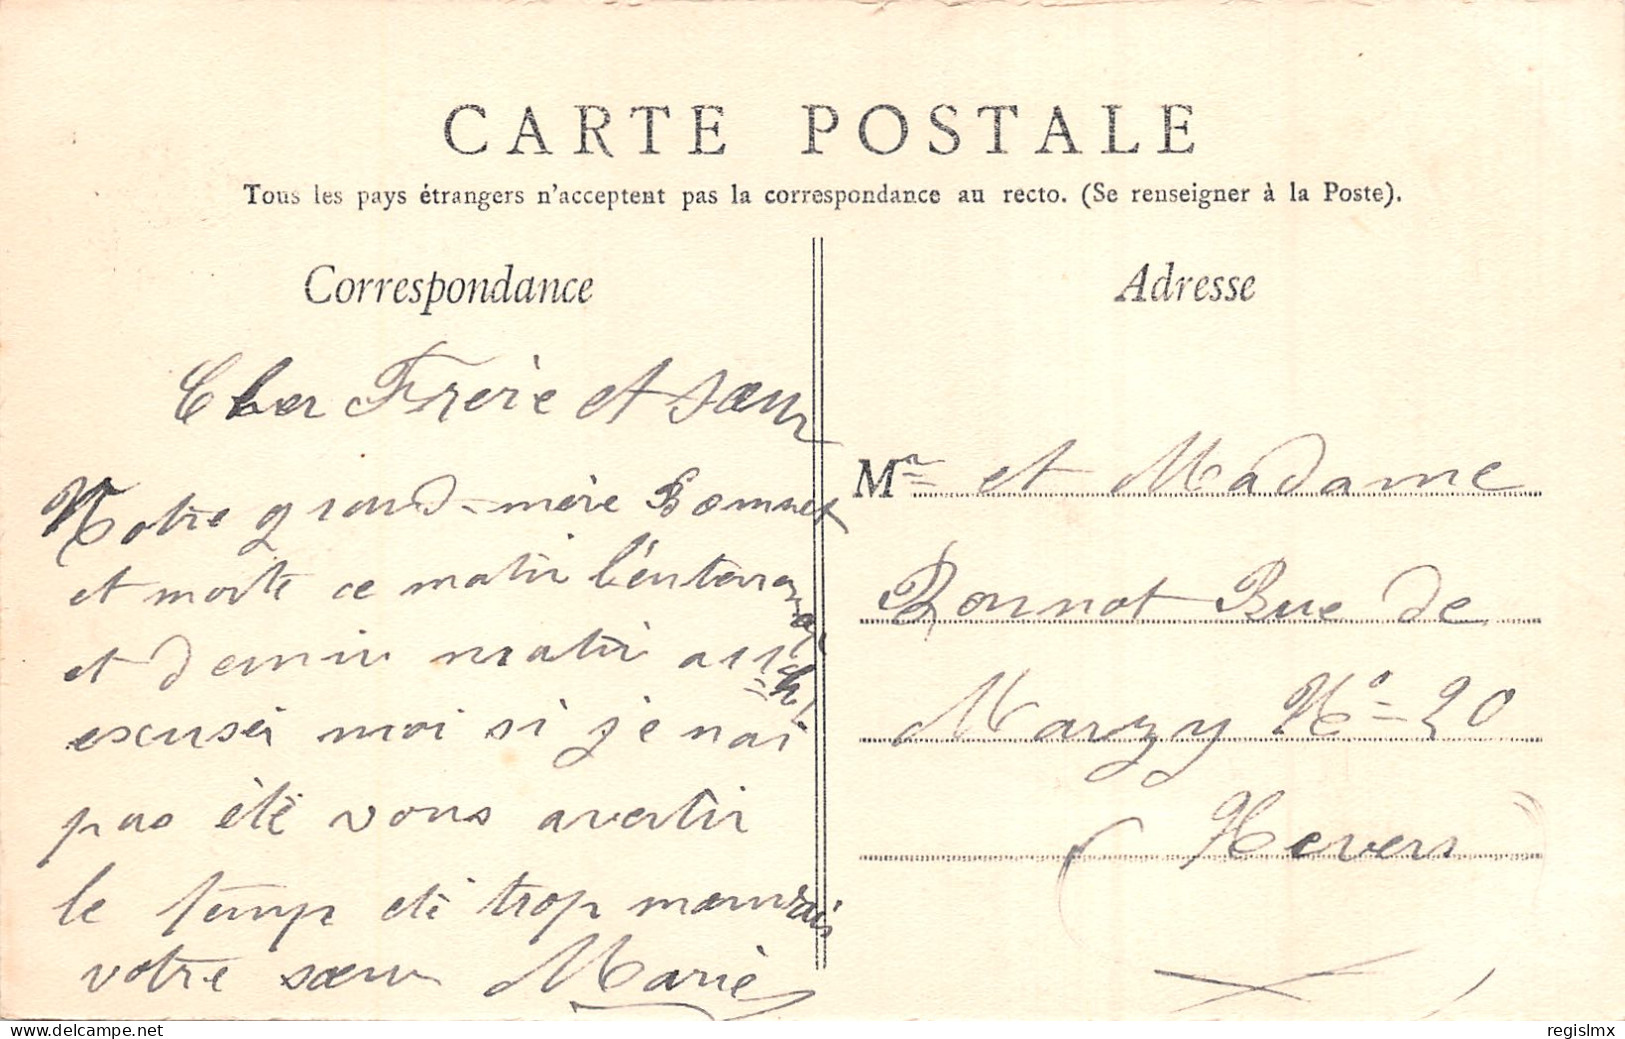 CARTE POSTALE
Tous les pays étrangers n'acceptent pas la correspondance au recto. (Se renseigner à la Poste).
Correspondance
Cher Frère et sœur
Notre grand-mère Bonnet
et morte ce matin l'enterrement
et demin matin a 11 h
excuser moi si je nai
pas été vous avertir
le temp etè trop mauvais
votre sœur Marie
Adresse
Mr et Madame
Bonnot Rue de
Marzy No 20
Nevers
delcampe.net
regislmx